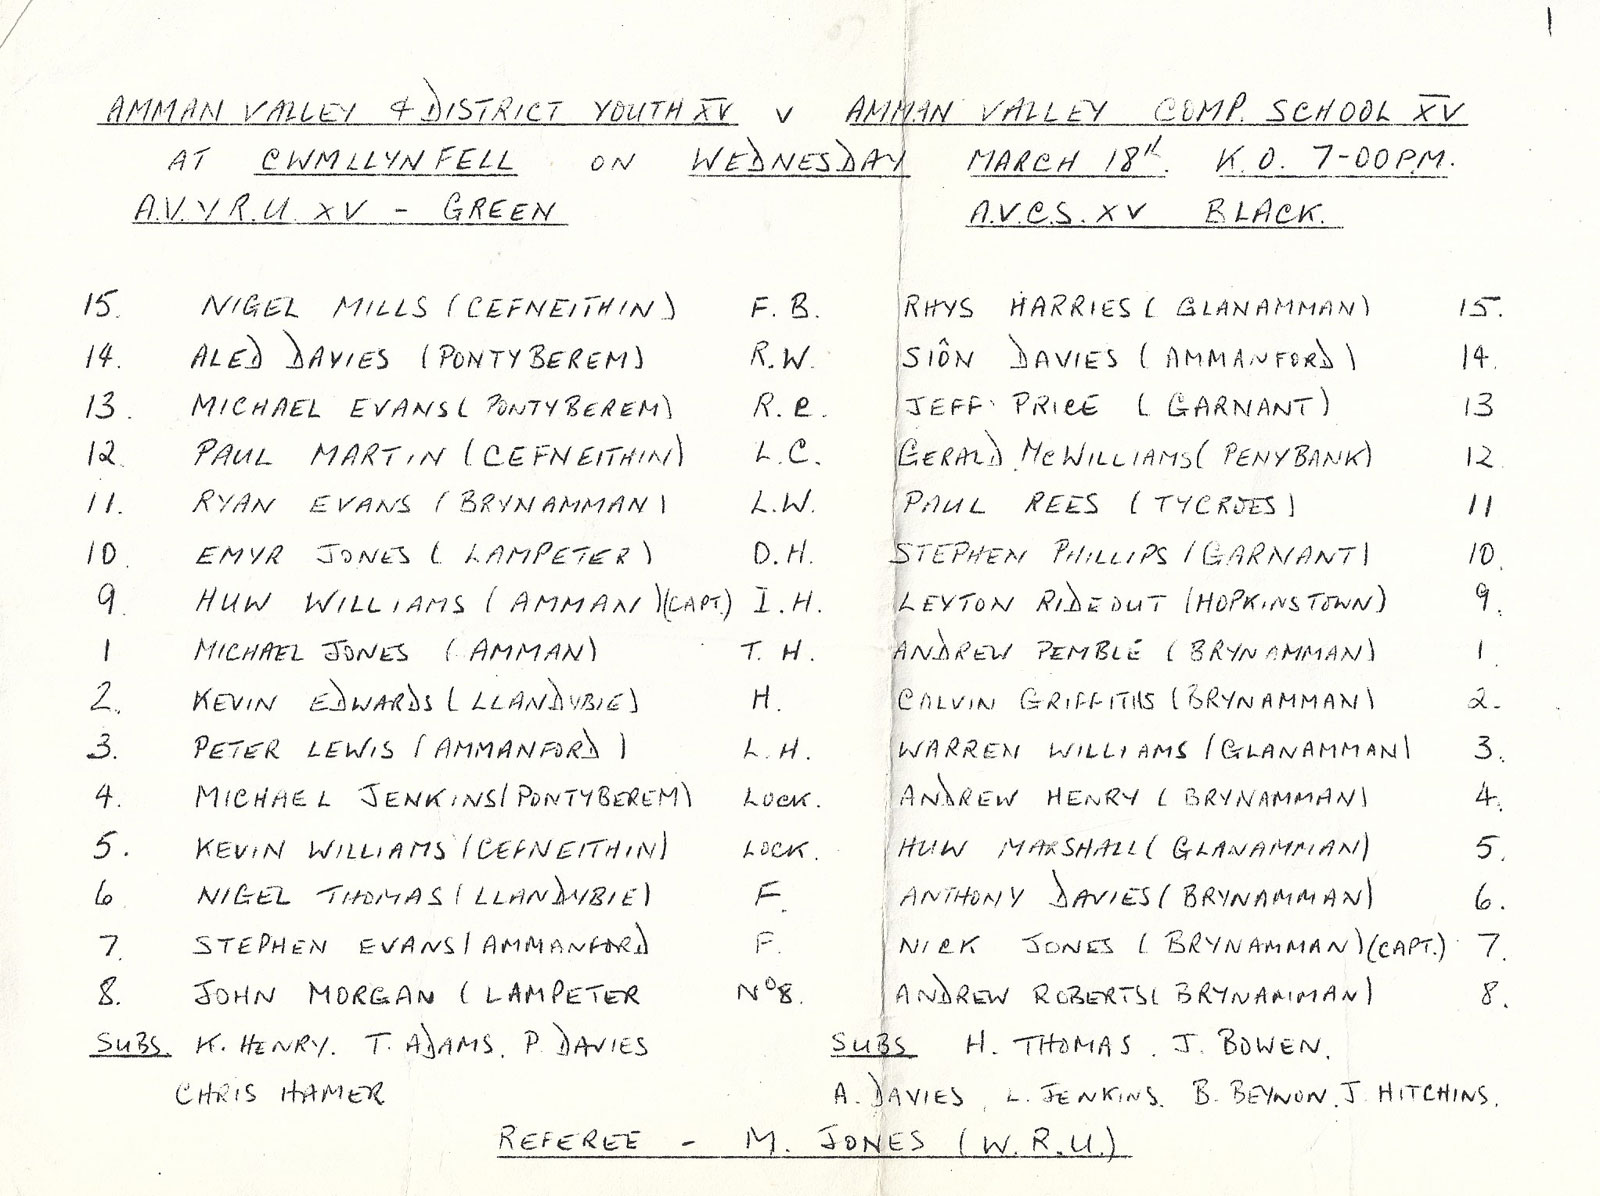 1
AMMAN VALLEY & DISTRICT YOUTH XV v AMMAN VALLEY COMP. SCHOOL XV
AT CWMLLYNFELL ON WEDNESDAY MARCH 18th. K.O. 7-00P.M.
A.V.Y R.U. XV - GREEN A.V.C.S. XV BLACK.
15. NIGEL MILLS (CEFNEITHIN) F.B. RHYS HARRIES (GLANAMMAN) 15.
14. ALED DAVIES (PONTYBEREM) R.W. SIÔN DAVIES (AMMANFORD) 14.
13. MICHAEL EVANS (PONTYBEREM) R.C. JEFF PRICE (GARNANT) 13
12. PAUL MARTIN (CEFNEITHIN) L.C. GERALD McWILLIAMS (PENYBANK) 12
11. RYAN EVANS (BRYNAMMAN) L.W. PAUL REES (TYCROES) 11
10. EMYR JONES (LAMPETER) O.H. STEPHEN PHILLIPS (GARNANT) 10.
9. HUW WILLIAMS (AMMAN) (CAPT.) I.H. LEYTON RIDEOUT (HOPKINSTOWN) 9.
1 MICHAEL JONES (AMMAN) T.H. ANDREW PEMBLE (BRYNAMMAN) 1.
2. KEVIN EDWARDS (LLANDYBIE) H. CALVIN GRIFFITHS (BRYNAMMAN) 2.
3. PETER LEWIS (AMMANFORD) L.H. WARREN WILLIAMS (GLANAMMAN) 3.
4. MICHAEL JENKINS (PONTYBEREM) LOCK. ANDREW HENRY (BRYNAMMAN) 4.
5. KEVIN WILLIAMS (CEFNEITHIN) LOCK. HUW MARSHALL (GLANAMMAN) 5.
6 NIGEL THOMAS (LLANDYBIE) F. ANTHONY DAVIES (BRYNAMMAN) 6.
7. STEPHEN EVANS (AMMANFORD) F. NICK JONES (BRYNAMMAN) (CAPT.) 7.
8. JOHN MORGAN (LAMPETER Nº8. ANDREW ROBERTS (BRYNAMMAN) 8.
SUBS. K. HENRY. T. ADAMS. P. DAVIES SUBS H. THOMAS. J. BOWEN.
CHRIS HAMER A. DAVIES, L. JENKINS. B. BEYNON. J. HITCHINS.
REFEREE - M. JONES (W.R.U.)